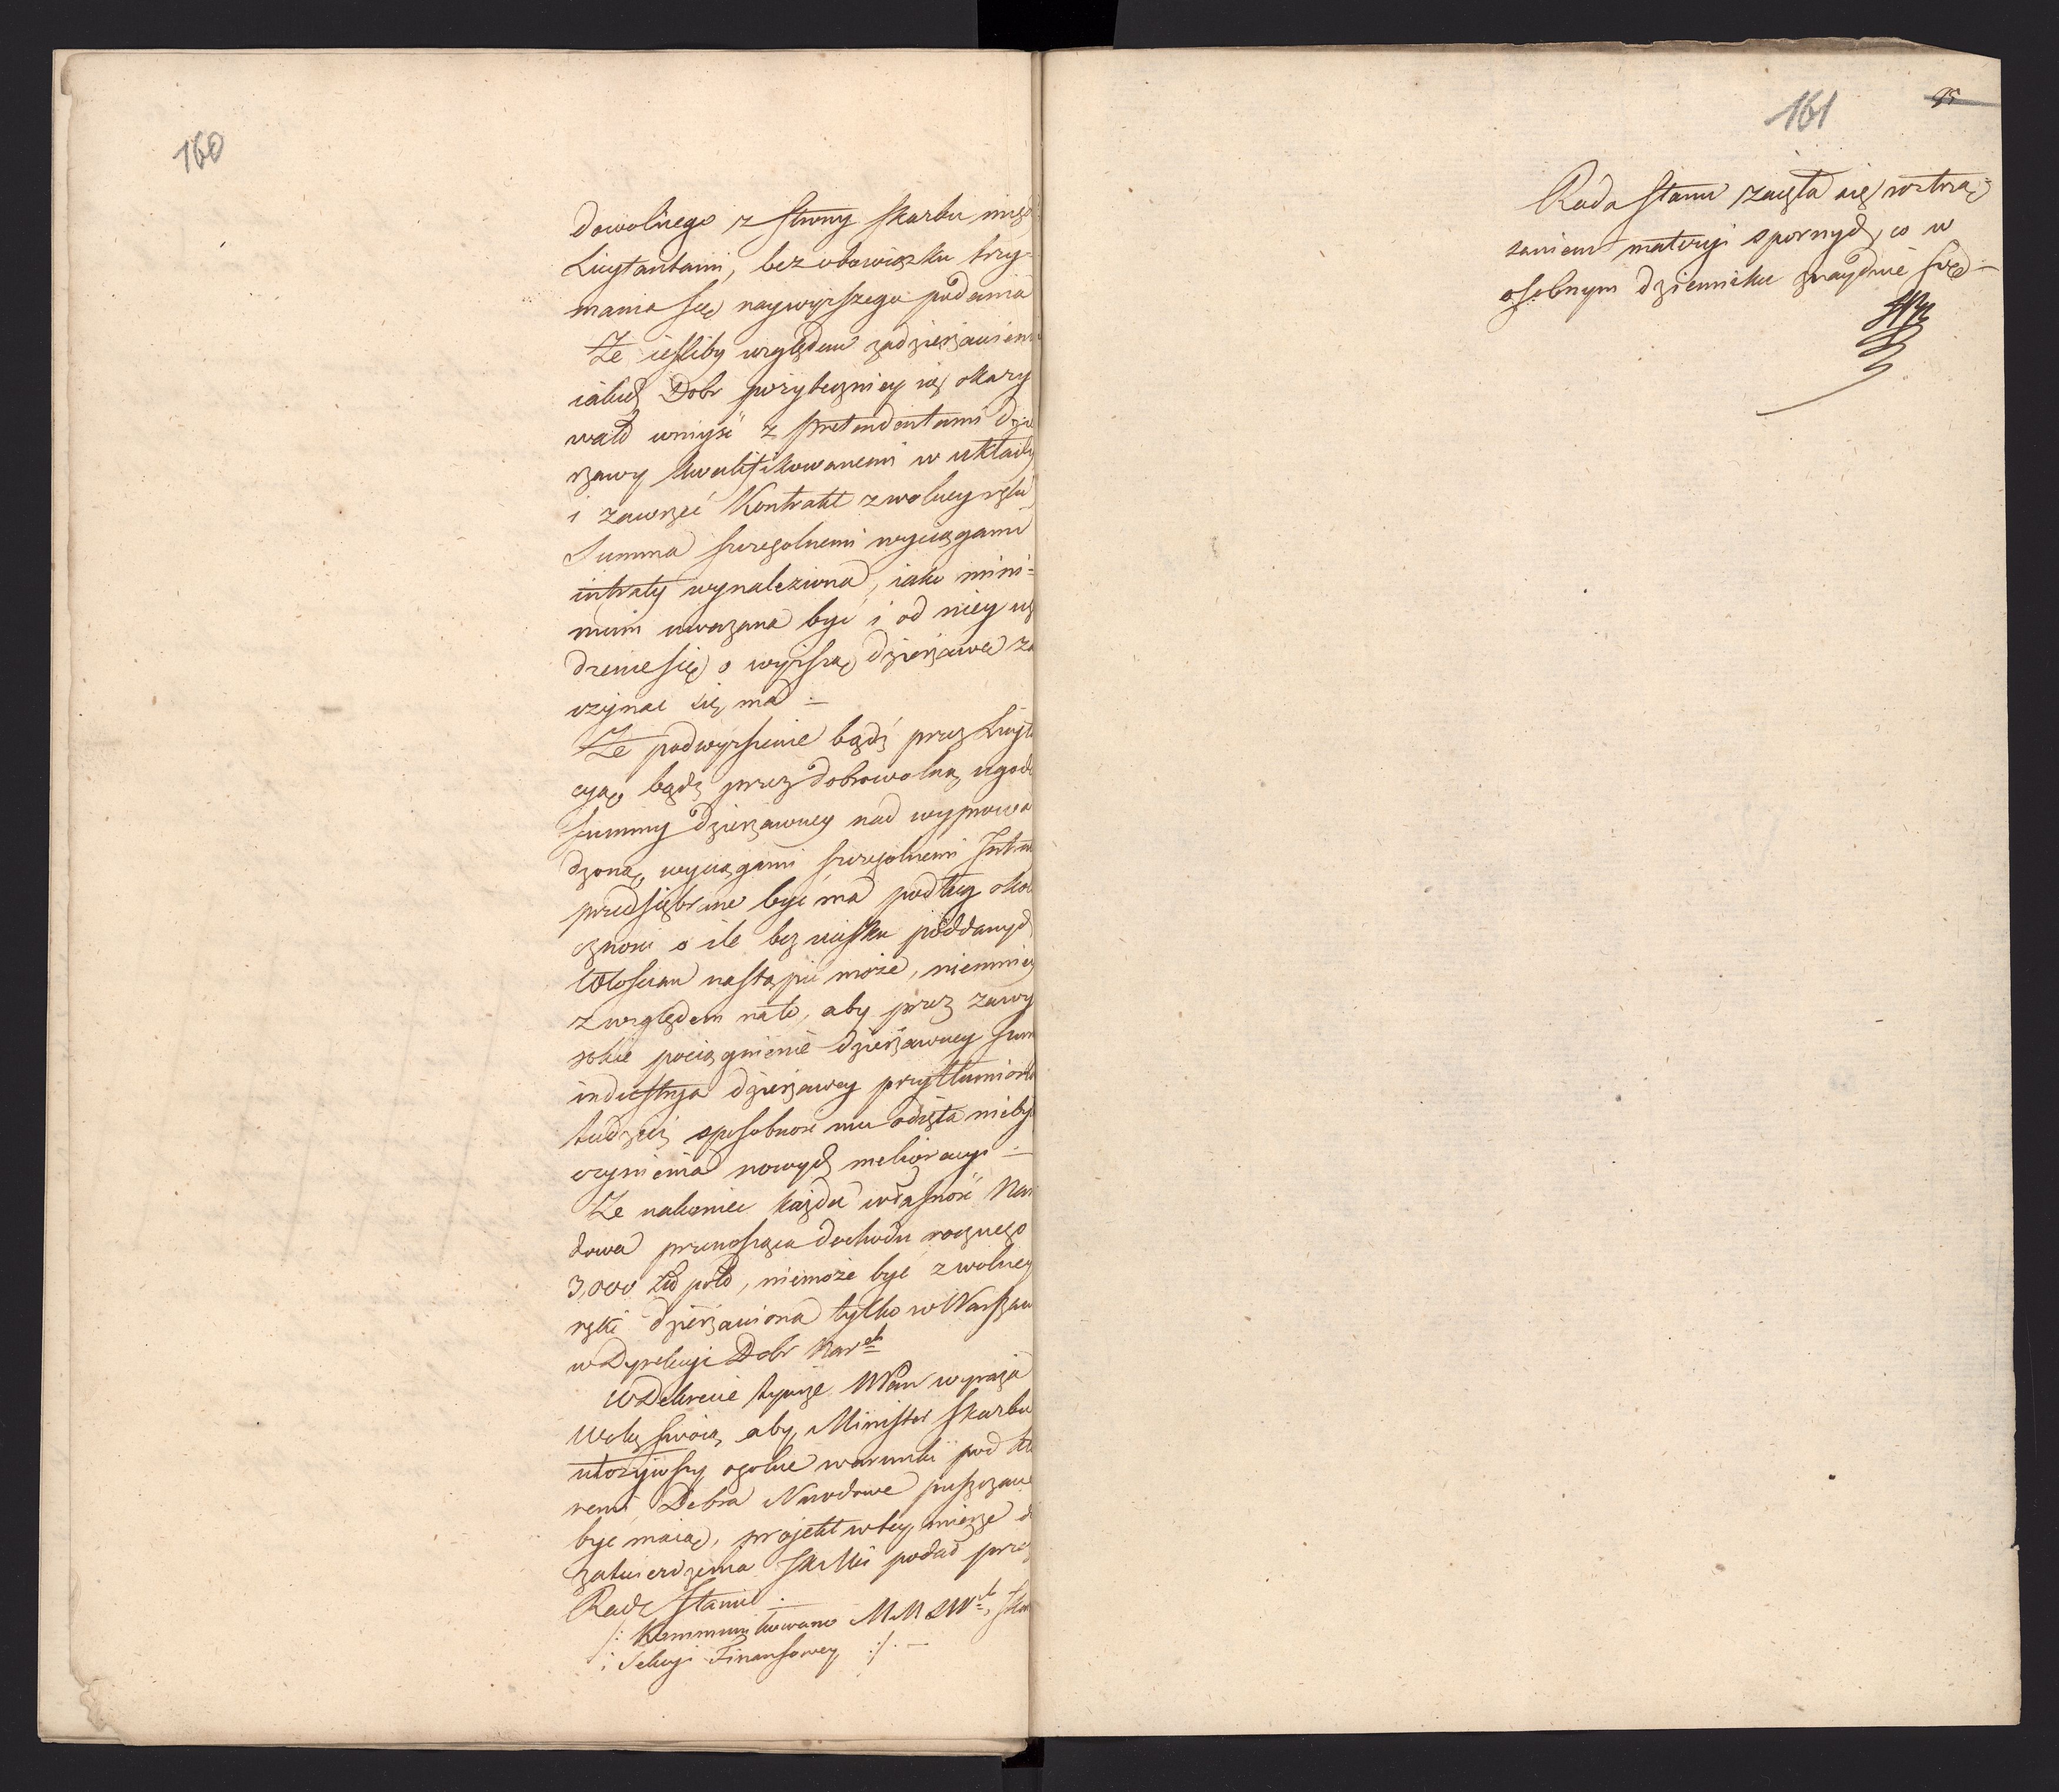 160
dowolnego z strony skarbu międ
Licytantami, bez obowiązku trzy-
mania się naywyższego podania
Że iesliby względem zadzierżawienia
iakich Dobr pożyteczniey się okazy
wało wniyść z Pretendentami dzie
rzawy kwalifikowanemi w układy
i zawrzeć Kontrakt z wolney ręki
Summa szczególnemi wyciągami
intraty wynaleziona, iako mini=
mum uwazana być i od niey
się o wyższą dzierżawę za
czynac się ma
Że podwyższenie bądź przez Licyta
cyą, bądź przez dobrowolną ugodę
summy dzierzawney nad wyprowa
dzoną, wyciągami szczególnemi Intra
przedsiębrane być ma podług oko
czności o ile bez ucisku poddanych
Włoscian nastąpić może, niemniey
z względem na to, aby przez zawy
sokie pociągnienie dzierżawney sum
industrya dzierżawcy przytłumiona
tudzież sposobnosc mu odięta nieby
czynienia nowych melioracyi
Że nakoniec każda własność Naro
dowa przenosząca dochodu rocznego
3,000 Zł pol, niemoże być z wolney
ręki dzierżawiona tylko w Warszaw
w Dyrekcyi Dobr Nar ch
W Dekrecie tymże NPan wyraża
Wolę swoią, aby Minister skarbu
ułożywszy ogolne warunki pod kto
remi Dobra Narodowe puszczane
być maią, projekt w tey mierze do
zatwierdzenia JKMci podał przez
Radę stanu
/: Kommunikowano MM SW ch, Skar
i Sekcyi Finansowey :/. —
161
95
Rada stanu zaięła się roztrzą=
saniem materyi spornych, co w
osobnym dzienniku znaydnie się —